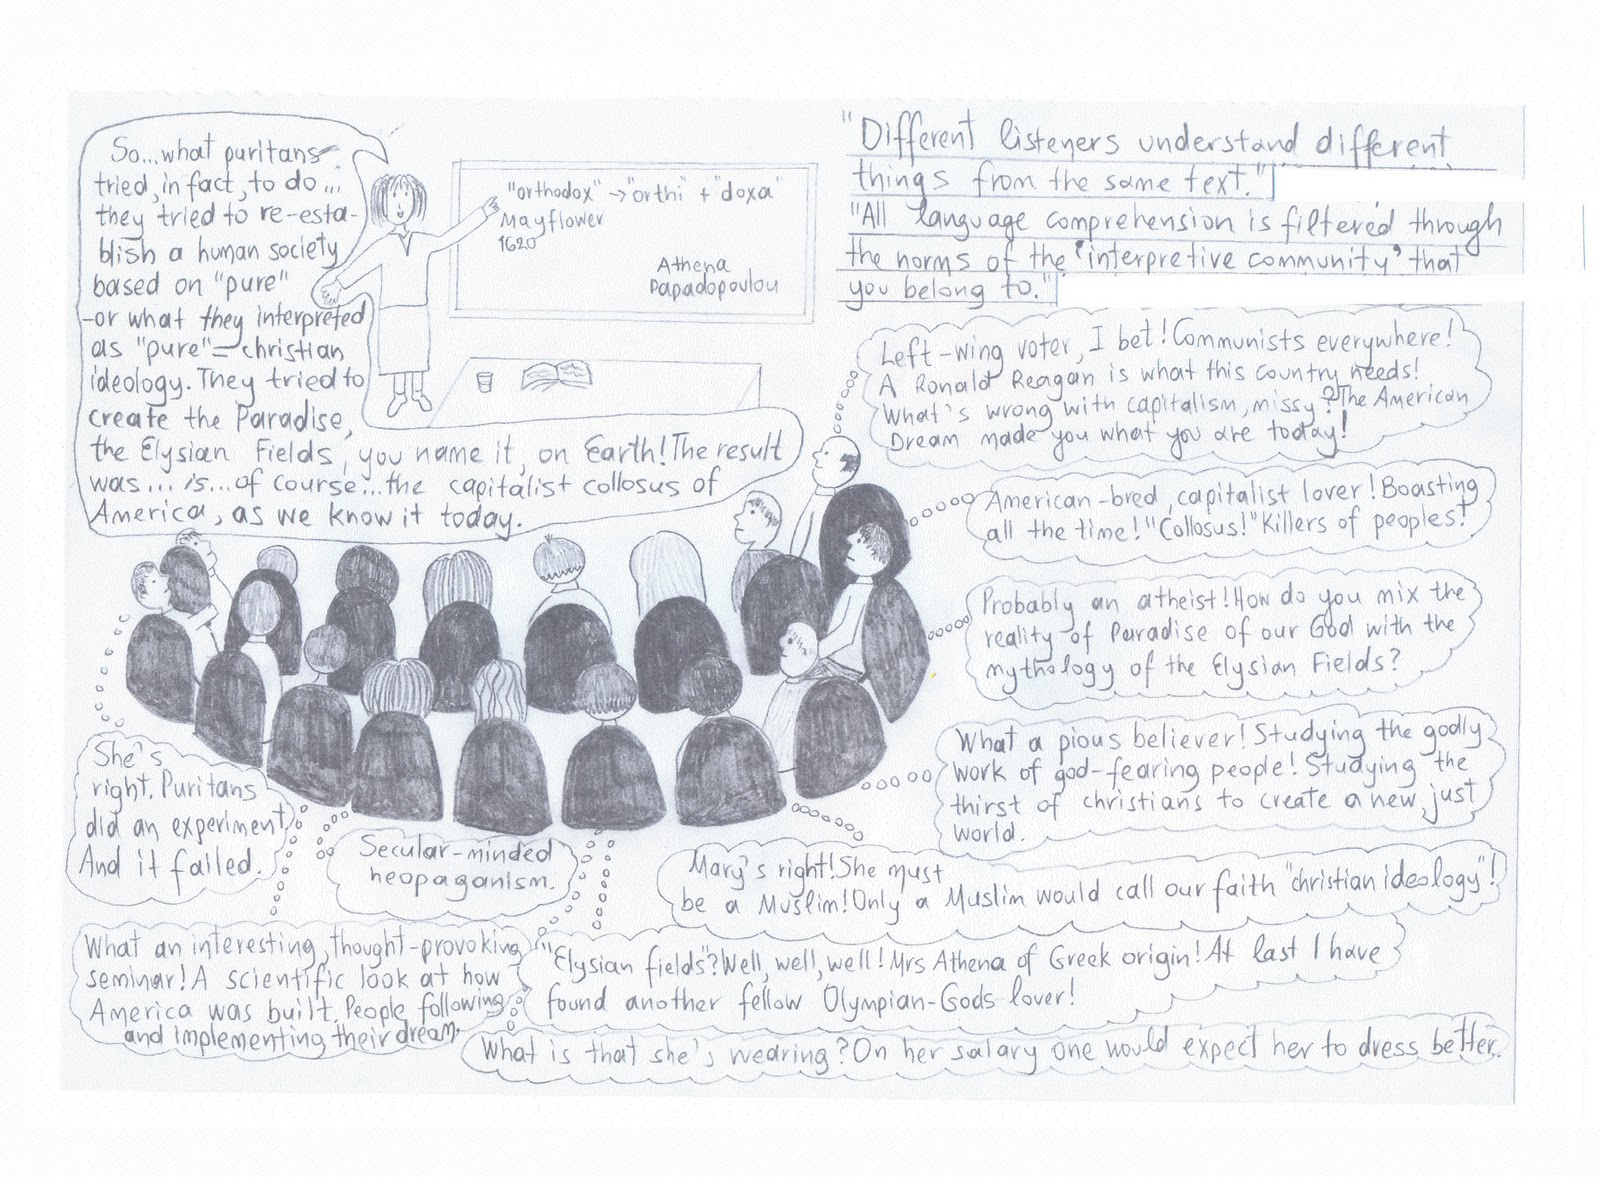 So...what puritans
tried, in fact, to do...
they tried to re-esta-
blish a human society
based on "pure"
-or what they interpreted
as "pure"- christian
ideology. They tried to
create the Paradise,
the Elysian Fields, you name it, on Earth! The result
was... is...of course...the capitalist collosus of
America, as we know it today.
"orthodox" → "orthi" + "doxa"
Mayflower
1620
Athena
Papadopoulou
"Different listeners understand different
things from the same text."
"All language comprehension is filtered through
the norms of the 'interpretive community' that
you belong to."
Left-wing voter, I bet! Communists everywhere!
A Ronald Reagan is what this country needs!
What's wrong with capitalism, missy? The American
Dream made you what you are today!
American-bred, capitalist lover! Boasting
all the time! "Collosus!" Killers of peoples!
Probably an atheist! How do you mix the
reality of Paradise of our God with the
mythology of the Elysian Fields?
What a pious believer! Studying the godly
work of god-fearing people! Studying the
thirst of christians to create a new, just
world.
She's
right. Puritans
did an experiment.
And it failed.
Secular-minded
neopaganism.
Mary's right! She must
be a Muslim! Only a Muslim would call our faith "christian ideology"!
What an interesting, thought-provoking
seminar! A scientific look at how
America was built. People following
and implementing their dream.
"Elysian fields"? Well, well, well! Mrs Athena of Greek origin! At last I have
found another fellow Olympian-Gods lover!
What is that she's wearing? On her salary one would expect her to dress better.